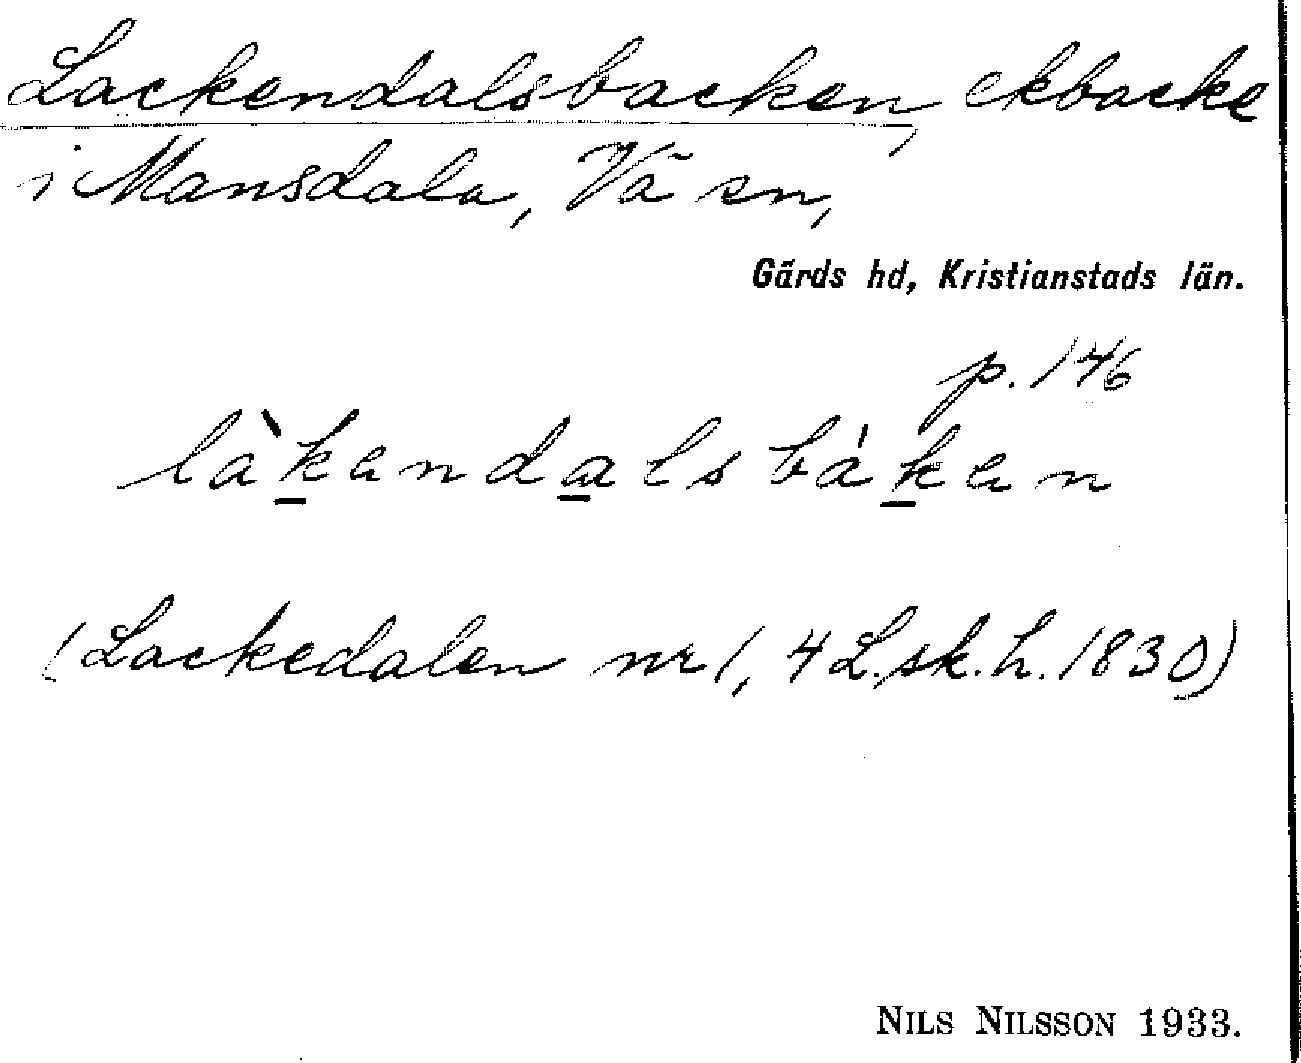 Lackendalsbacken, ekbacke
i Mansdala, Vä sn,
Gärds hd, Kristianstads län.
p. 146
làkendalsbáken
(Lackedalen nr 1, 4 L.sk.h. 1830)
NILS NILSSON 1933.